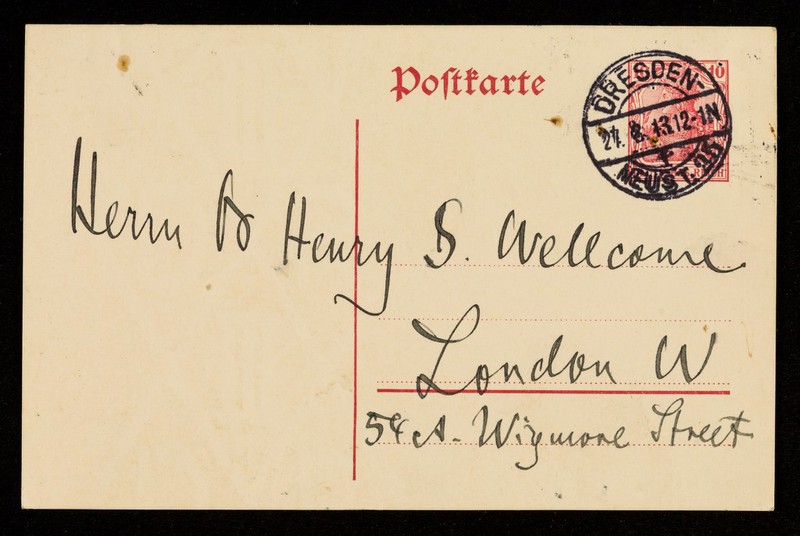 Postkarte
10
DRESDEN-
21. 8. 13 12-1N
NEUST. 25
Herrn Dr Henry S. Wellcome
London W
54 A. Wigmore Street